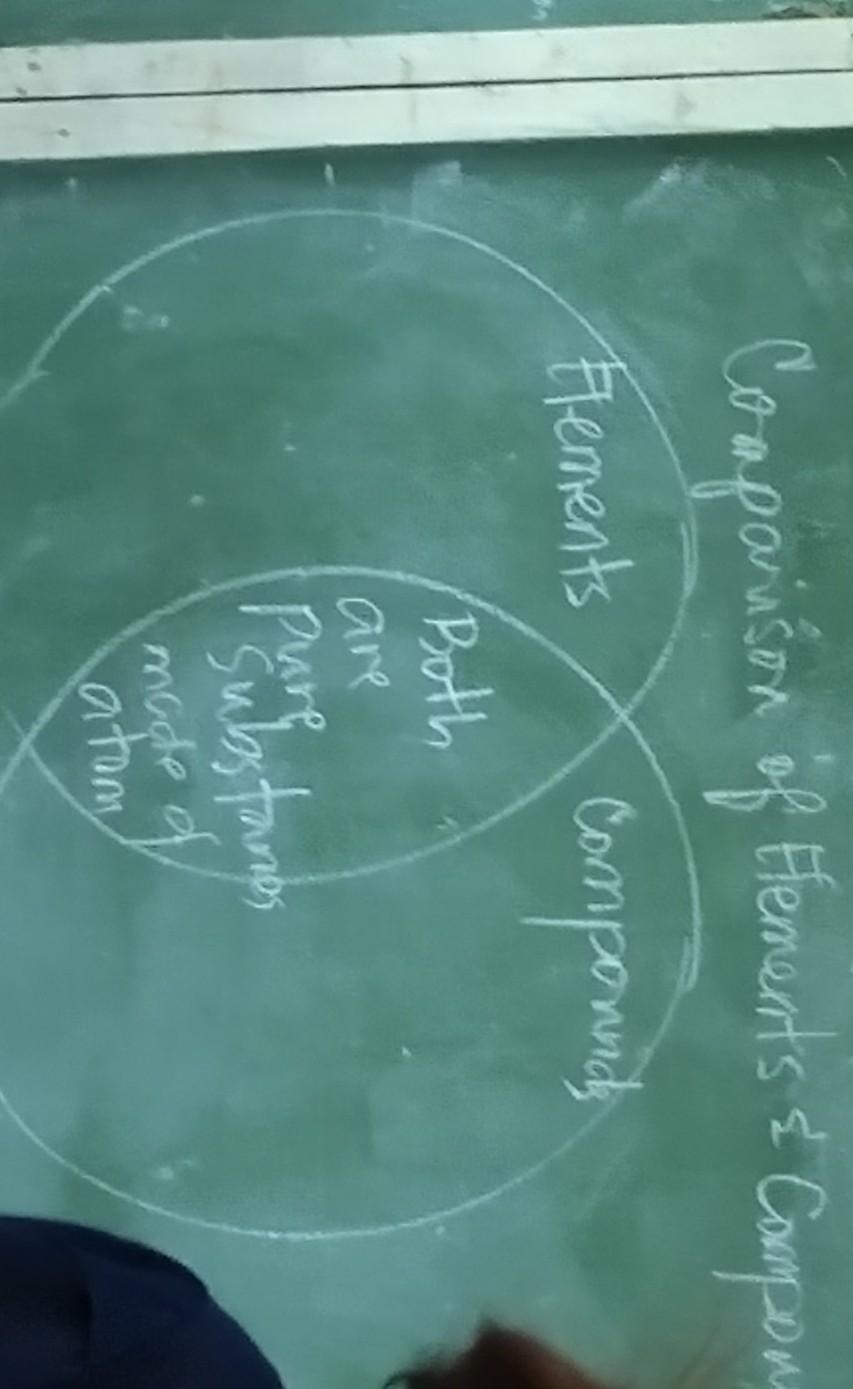 Comparison of Elements & Compoun
Elements
Compounds
Both
are
pure
substances
made of
atom